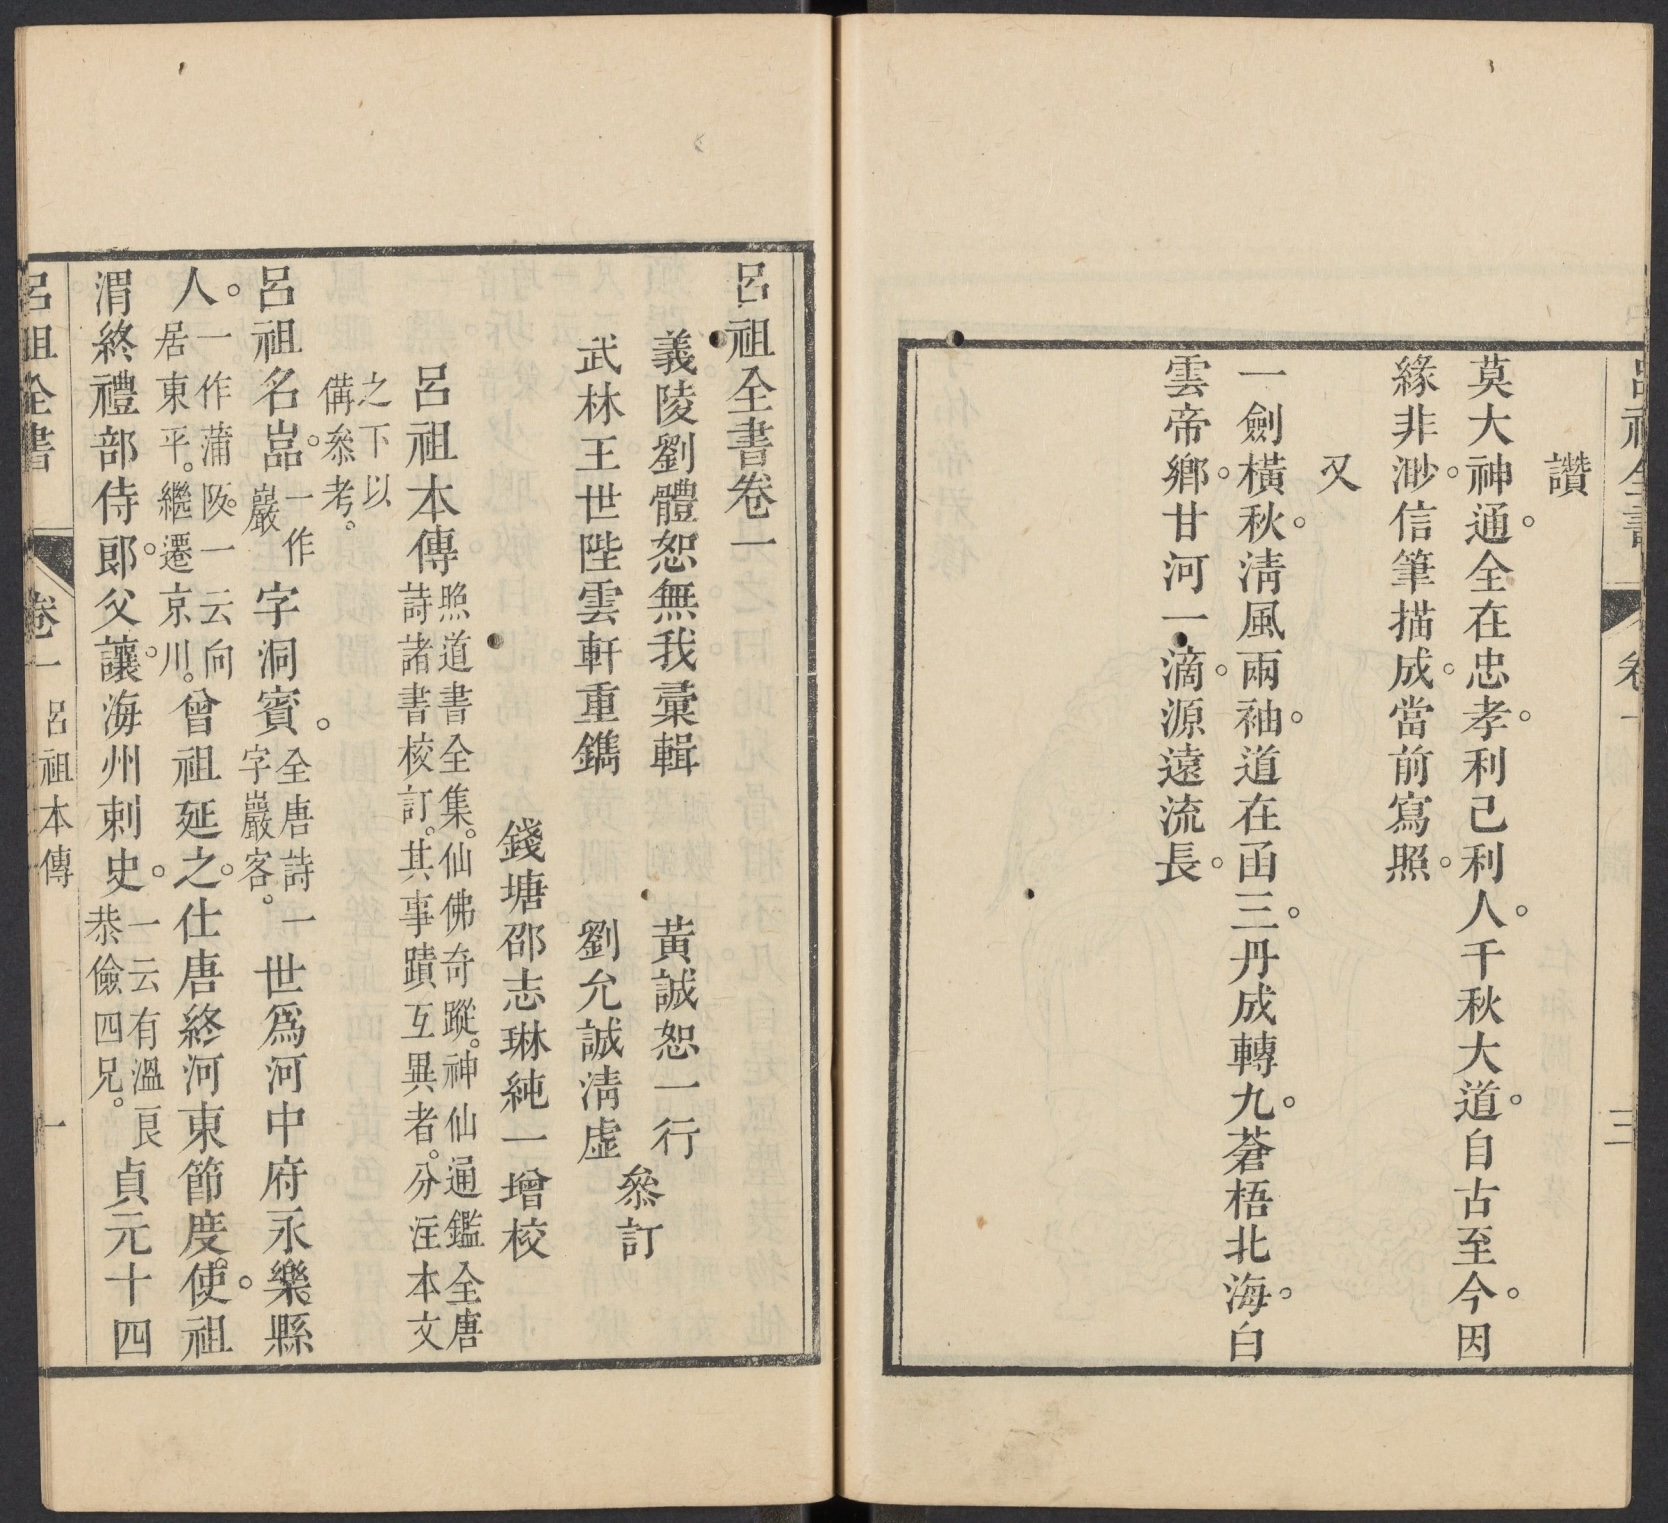 呂祖全書 卷一 三
讚
莫大神通。全在忠孝。利己利人。千秋大道。自古至今。因
緣非渺。信筆描成。當前寫照。
又
一劍橫秋。淸風兩袖。道在函三。丹成轉九。蒼梧北海。白
雲帝鄉。甘河一滴。源遠流長。
呂祖全書卷一
義陵劉體恕無我彙輯 黃誠恕一行
武林王世陛雲軒重鐫 劉允誠淸虛
叅訂
錢塘邵志琳純一增校
呂祖本傳 照道書全集。仙佛奇蹤。神仙通鑑全唐
詩諸書校訂。其事蹟互異者。分注本文
之下以
備叅考。
呂祖名嵒。一作巖 字洞賓。全唐詩一字巖客。世爲河中府永樂縣
人。一作蒲阪。一云向居東平。繼遷京川。曾祖延之。仕唐終河東節度使。祖
渭終禮部侍郎。父讓。海州刺史。一云有溫良恭儉四兄。貞元十四
呂祖全書 卷一 呂祖本傳 一